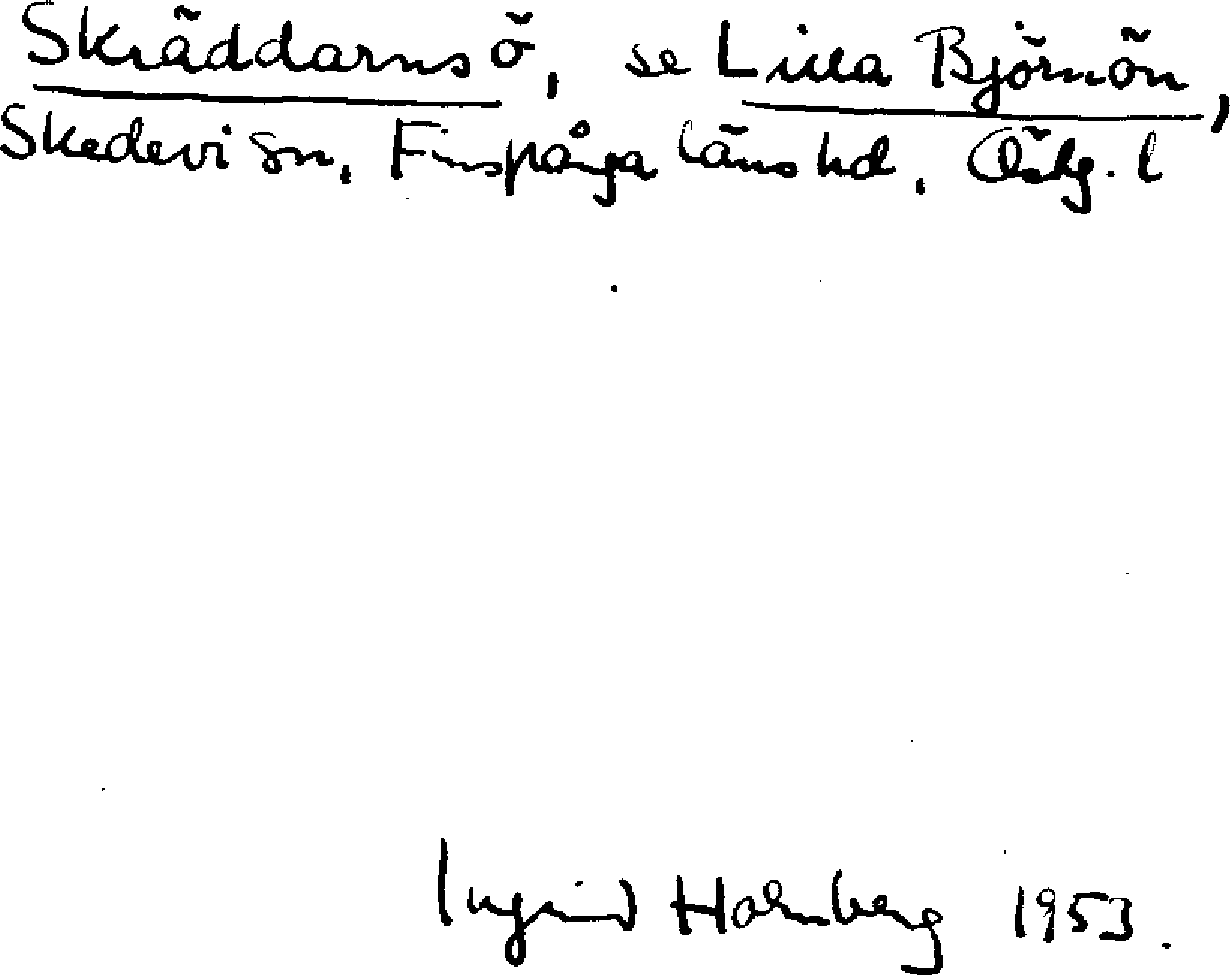 Skräddarns ö, se Lilla Björnön,
Skedevi sn, Finspånga läns hd, Östg. l
Ingrid Holmberg 1953.